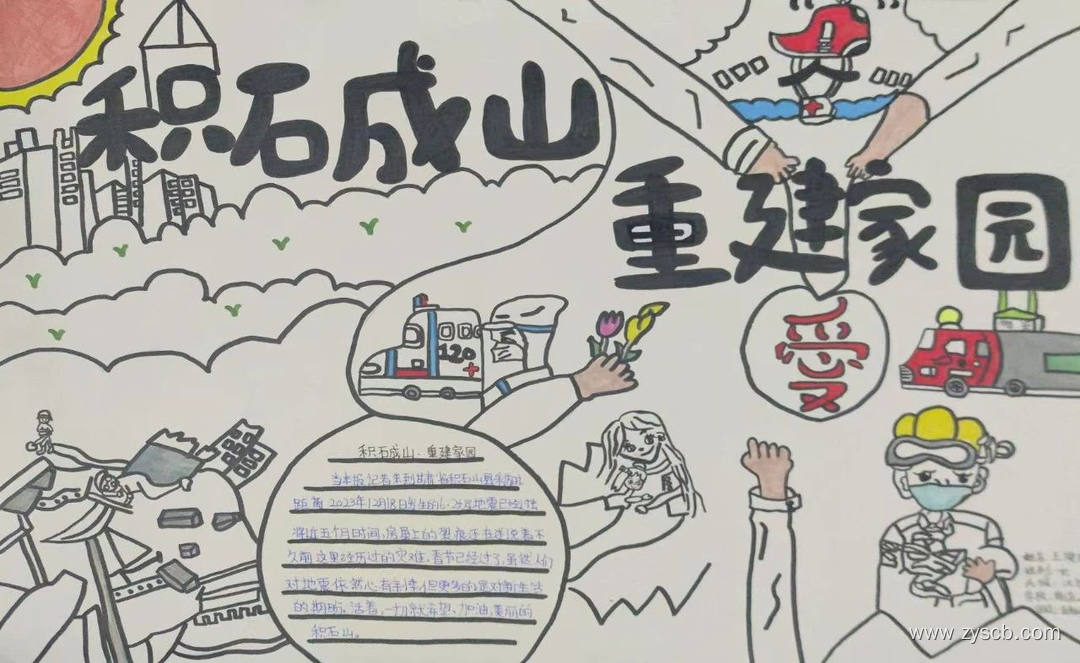 积石成山
重建家园
爱
120
积石成山·重建家园
当本报记者来到甘肃省积石山县采访时
距离2023年12月18日发生的6.2级地震已经过去
将近五个月时间,房屋上的裂痕还在述说着不
久前这里经历过的灾难,春节已经过了,虽然人们
对地震依然心有余悸,但更多的是对新生活
的期盼。活着,一切就有希望、加油,美丽的
积石山。
www.zyscb.com